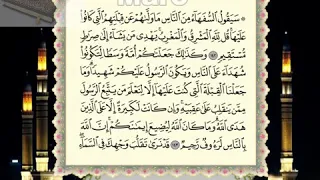 سَيَقُولُ السُّفَهَاءُ مِنَ النَّاسِ مَا وَلَّىٰهُمْ عَن قِبْلَتِهِمُ الَّتِي كَانُوا
عَلَيْهَا قُل لِّلَّهِ الْمَشْرِقُ وَالْمَغْرِبُ يَهْدِي مَن يَشَاءُ إِلَىٰ صِرَاطٍ
مُّسْتَقِيمٍ ١٤٢ وَكَذَٰلِكَ جَعَلْنَاكُمْ أُمَّةً وَسَطًا لِّتَكُونُوا
شُهَدَاءَ عَلَى النَّاسِ وَيَكُونَ الرَّسُولُ عَلَيْكُمْ شَهِيدًا وَمَا
جَعَلْنَا الْقِبْلَةَ الَّتِي كُنتَ عَلَيْهَا إِلَّا لِنَعْلَمَ مَن يَتَّبِعُ الرَّسُولَ
مِمَّن يَنقَلِبُ عَلَىٰ عَقِبَيْهِ وَإِن كَانَتْ لَكَبِيرَةً إِلَّا عَلَى الَّذِينَ
هَدَى اللَّهُ وَمَا كَانَ اللَّهُ لِيُضِيعَ إِيمَانَكُمْ إِنَّ اللَّهَ
بِالنَّاسِ لَرَءُوفٌ رَّحِيمٌ ١٤٣ قَدْ نَرَىٰ تَقَلُّبَ وَجْهِكَ فِي السَّمَاءِ